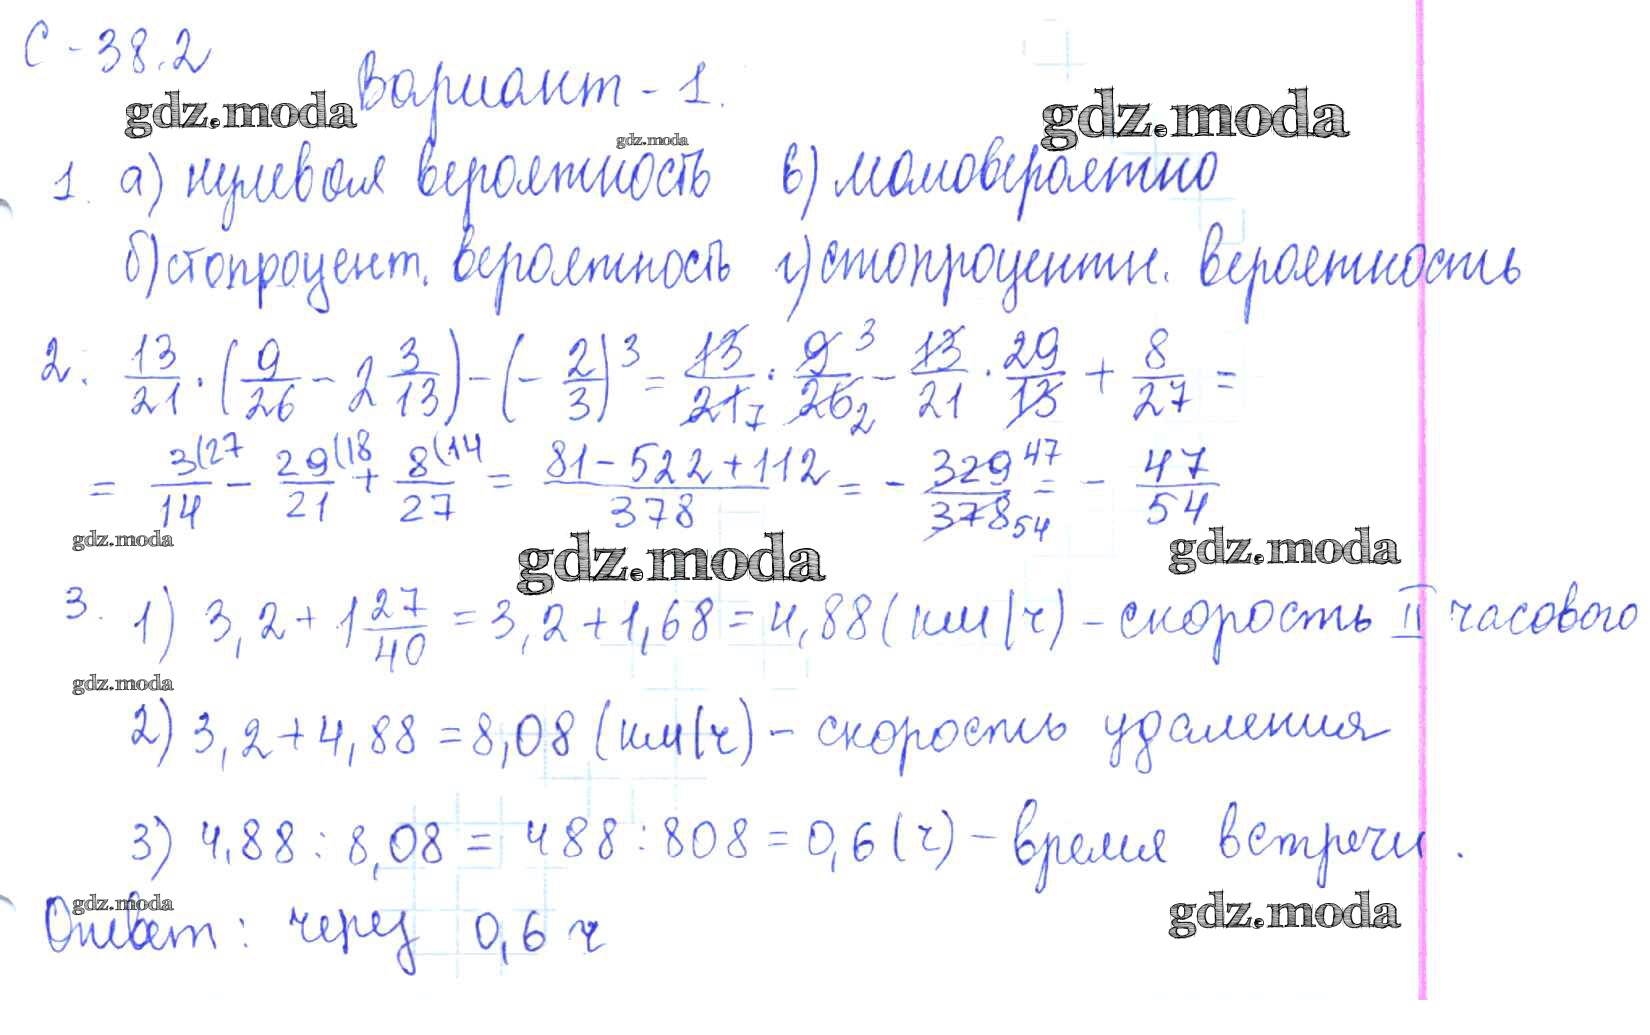 С-38.2
Вариант - 1.
gdz.moda gdz.moda gdz.moda
1. а) нулевая вероятность в) маловероятно
б) стопроцент. вероятность г) стопроцентн. вероятность
2. 13/21 · (9/26 - 2 3/13) - (-2/3)^3 = 13/21 7 · 9 3/26 2 - 13/21 · 29/13 + 8/27 =
= 3(27/14 - 29(18/21 + 8(14/27 = 81-522+112/378 = - 329 47/378 54 = - 47/54
gdz.moda gdz.moda gdz.moda
3. 1) 3,2 + 1 27/40 = 3,2 + 1,68 = 4,88 (км/ч) - скорость II часового
gdz.moda
2) 3,2 + 4,88 = 8,08 (км/ч) - скорость удаления
3) 4,88 : 8,08 = 488 : 808 = 0,6 (ч) - время встречи.
gdz.moda gdz.moda
Ответ: через 0,6 ч